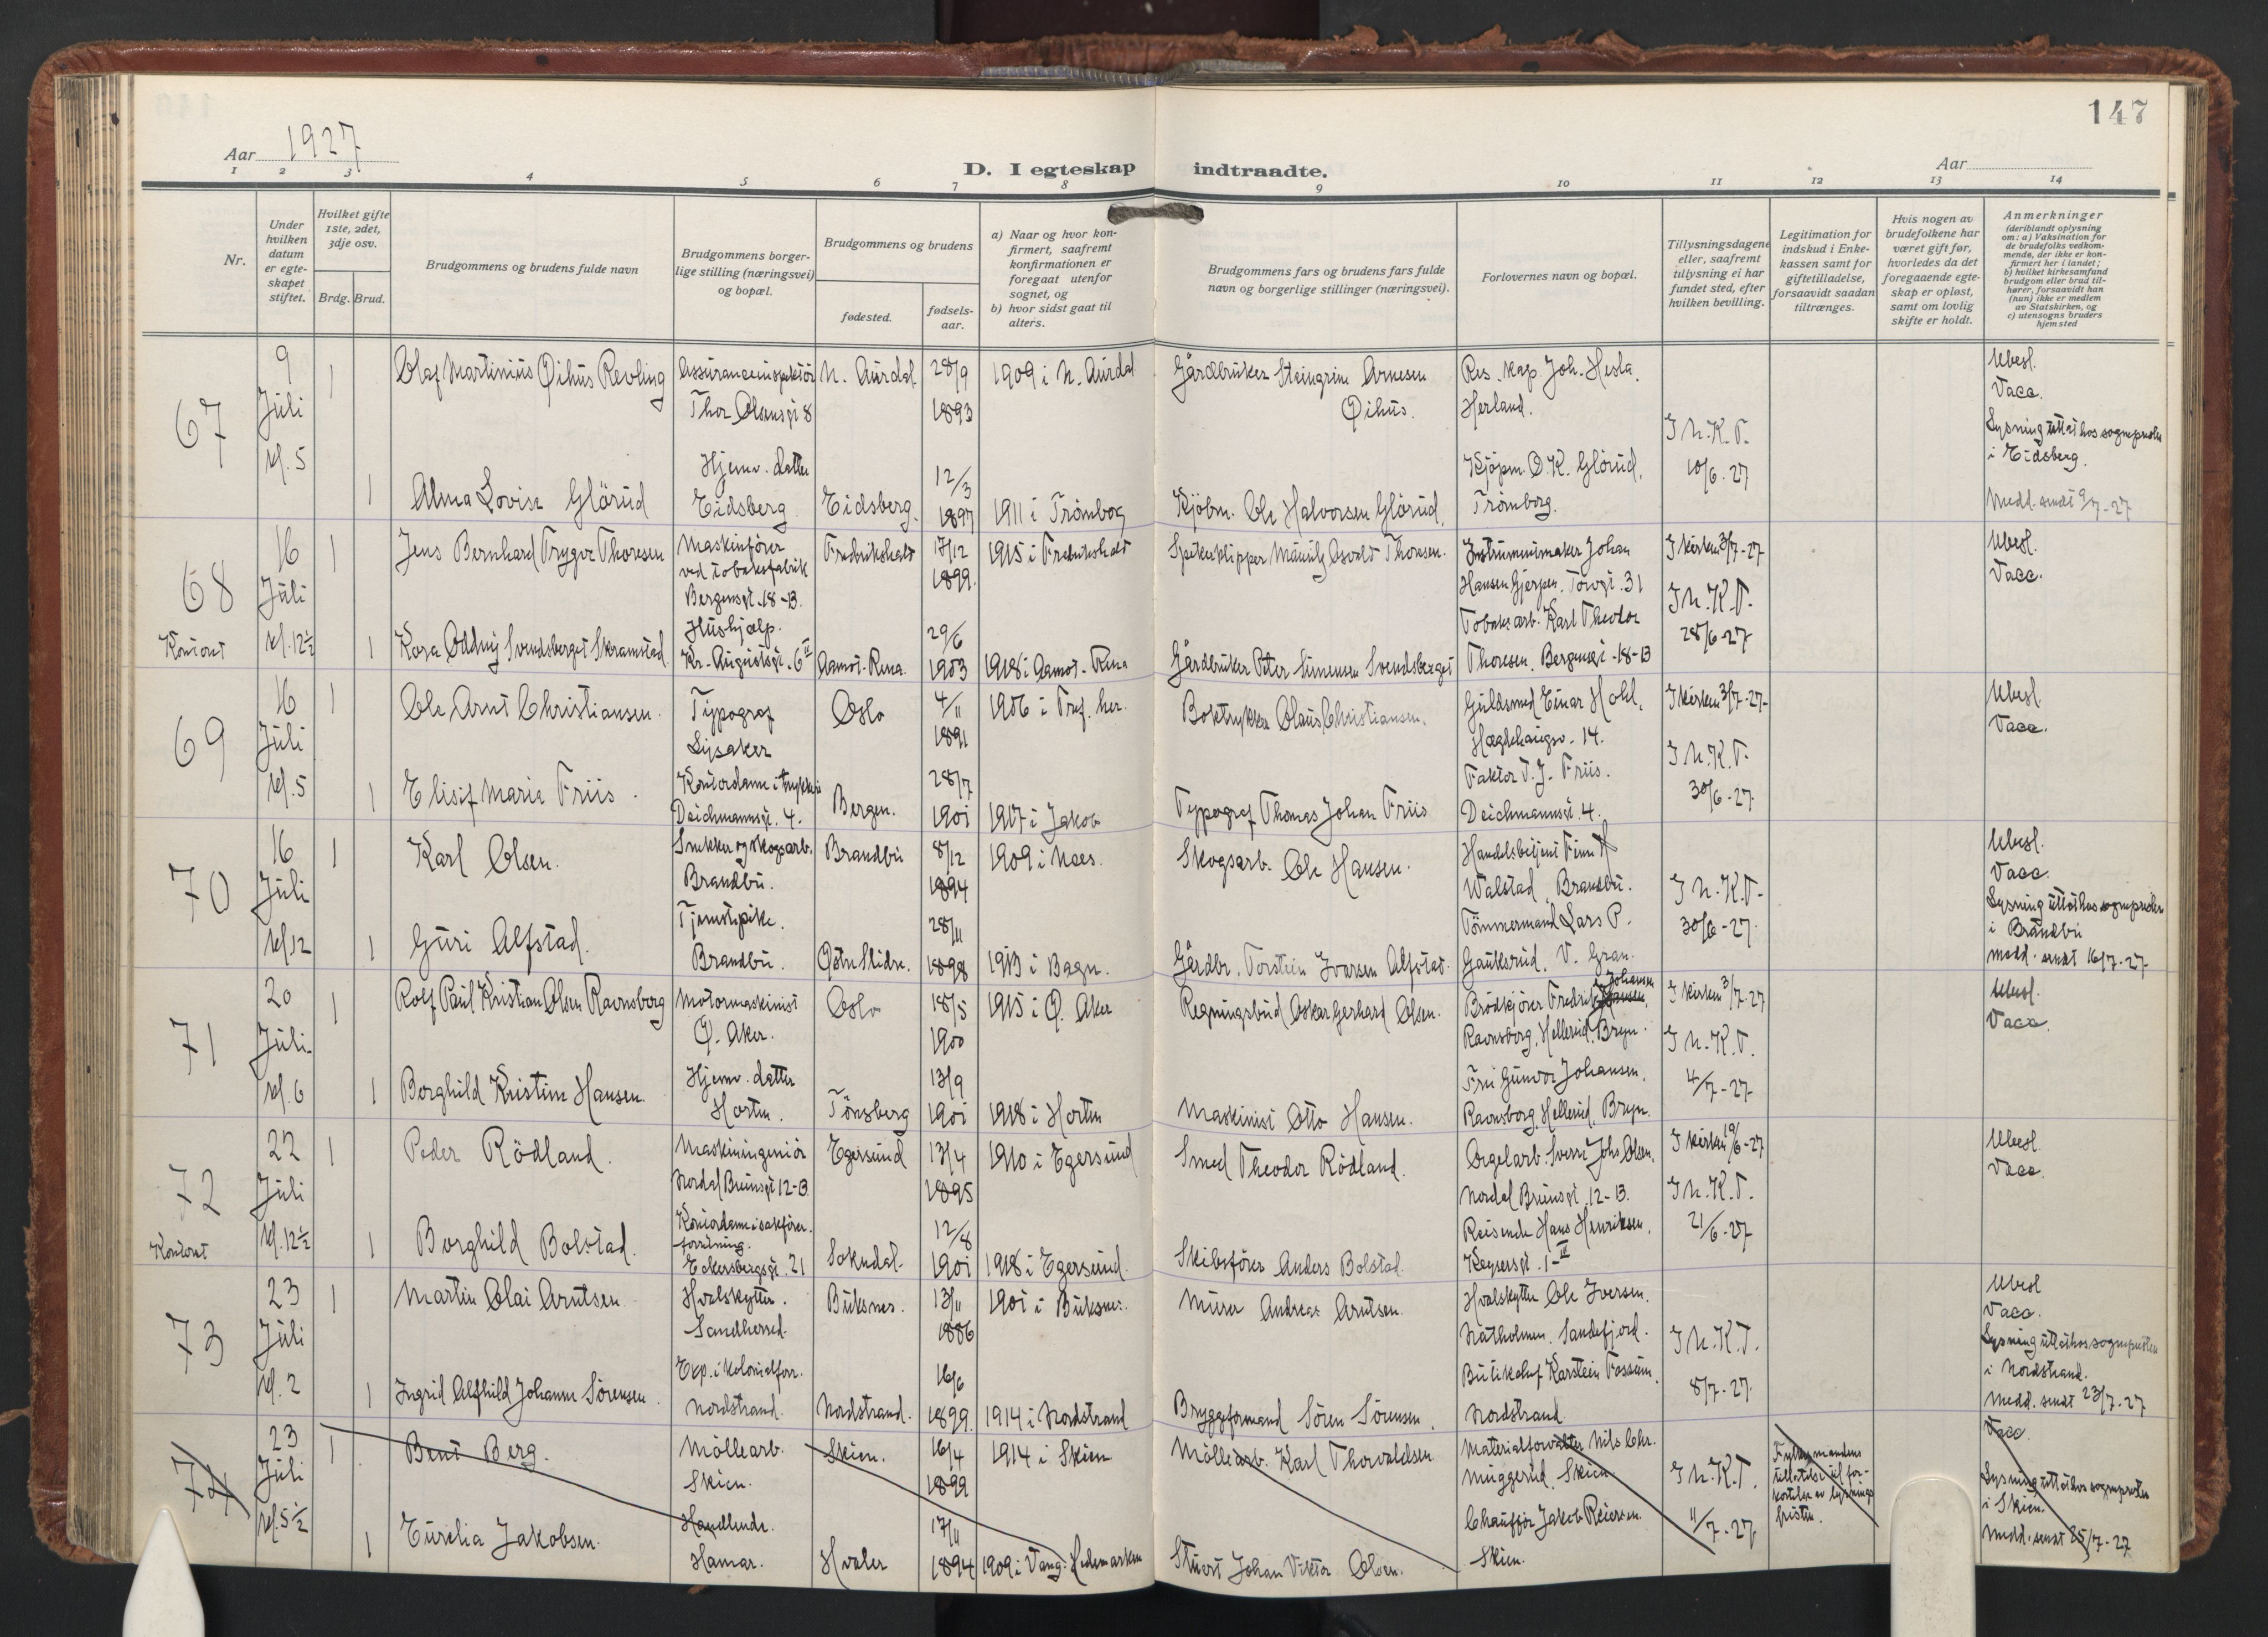 147
Aar 1927
D. I egteskap indtraadte.
Aar
1 2 3 4 5 6 7 8 9 10 11 12 13 14
Nr.
Under hvilken datum er egteskapet stiftet.
Hvilket gifte 1ste, 2det, 3dje osv.
Brdg. Brud.
Brudgommens og brudens fulde navn
Brudgommens borgerlige stilling (næringsvei) og bopæl.
Brudgommens og brudens
fødested.
fødsels-aar.
a) Naar og hvor konfirmert, saafremt konfirmationen er foregaat utenfor sognet, og
b) hvor sidst gaat til alters.
Brudgommens fars og brudens fars fulde navn og borgerlige stillinger (næringsvei).
Forlovernes navn og bopæl.
Tillysningsdagene eller, saafremt tillysning ei har fundet sted, efter hvilken bevilling.
Legitimation for indskud i Enkekassen samt for giftetilladelse, forsaavidt saadan tiltrænges.
Hvis nogen av brudefolkene har været gift før, hvorledes da det foregaaende egteskap er opløst, samt om lovlig skifte er holdt.
Anmerkninger (deriblandt oplysning om: a) Vaksination for de brudefolks vedkommende, der ikke er konfirmert her i landet; b) hvilket kirkesamfund brudgom eller brud tilhører, forsaavidt han (hun) ikke er medlem av Statskirken, og c) utensogns bruders hjemsted
67
9 Juli kl. 5
1 Olaf Martinius Øihus Revling
Assuranceinspektör Thor Olsensgt 8
N. Aurdal 28/9 1893
1909 i N. Aurdal
Gårdbruker Steingrim Arnesen Øihus.
Res. kap. Joh. Hesla. Herland.
I N.K.T. 10/6-27
Ubesl. Vacc.
Lysning uttat hos sognepresten i Eidsberg.
Medd. sendt 9/7-27
1 Alma Lovise Glörud
Hjemv. datter Eidsberg
Eidsberg. 12/3 1897
1911 i Trömborg
Kjöbm. Ole Halvorsen Glörud.
Kjöpm. O.K. Glörud. Trömborg.
68 Kontoret
16 Juli kl. 12½
1 Jens Bernhard Trygve Thoresen
Maskinförer ved tobaksfabrik Bergensgt. 18-B.
Fredrikshald 17/12 1899.
1915 i Fredrikshald
Spikerklipper Mauritz Osvald Thoresen.
Instrumentmaker Johan Hansen Gjerpen. Torvgt. 31
I kirken 3/7-27
I N.K.T. 28/6-27
Ubesl. Vacc.
1 Kara Oddny Svendsberget Skramstad
Hushjælp. Kr. Augustsgt. 6 II
Aamot-Rena. 29/6 1903
1918 i Aamot-Rena
Gårdbruker Peter Simensen Svendsberget
Tobaksarb. Karl Theodor Thoresen. Bergensgt-18-B
69
16 Juli kl. 5
1 Ole Arnt Christiansen.
Typograf Lysaker
Oslo 4/11 1891
1906 i Tref. her.
Boktrykker Olaus Christiansen.
Guldsmed Einar Hohl. Hægdehaugsv. 14.
I kirken 3/7-27-
I N.K.T. 30/6-27
Ubesl. Vacc.
1 Elisif Marie Friis.
Kontordame i trykkeri Deichmannsgt. 4.
Bergen. 28/7 1901
1917 i Jakob
Typograf Thomas Johan Friis
Faktor T.J. Friis. Deichmannsgt. 4.
70
16 Juli kl 12
1 Karl Olsen.
Snekker og skogsarb. Brandbu.
Brandbu 8/12 1894
1909 i Næs.
Skogsarb. Ole Hansen.
Handelsbetjent Finn H Walstad, Brandbu.
I N.K.T. 30/6-27.
Ubesl. Vacc.
Lysning uttat hos sognepresten i Brandbu
medd. sendt 16/7-27.
1 Guri Alfstad.
Tjenestepike. Brandbu.
Østre Slidre. 28/11 1898
1913 i Bagn.
Gårdbr. Torstein Ivarsen Alfstad.
Tömmermand Lars P. Gauksrud. V. Gran.
71
20 Juli kl. 6
1 Rolf Paul Kristian Olsen Ravnsborg
Motormaskinist Ø. Aker.
Oslo 18/5 1900
1915 i Ø. Aker
Regningsbud Oskar Gerhard Olsen.
Brödkjörer Fredrik Johansen Ravnsborg, Hellerud, Bryn.
I kirken 3/7-27
I N.K.T. 4/7-27
Ubesl. Vacc.
1 Borghild Kristine Hansen.
Hjemv. datter Horten.
Tönsberg 13/9 1901
1918 i Horten
Maskinist Otto Hansen.
Fru Gunvor Johansen, Ravnsborg, Hellerud, Bryn.
72 Kontoret
22 Juli kl. 12½
1 Peder Rödland.
Maskiningeniör Nordal Brunsgt 12-B.
Egersund 13/4 1895
1910 i Egersund
Smed Theodor Rödland.
Orgelarb. Sverre Johs Olsen. Nordal Brunsgt. 12-B.
I kirken 19/6-27
I N.K.T. 21/6-27
Ubesl. Vacc.
1 Borghild Bolstad.
Kontordame i sakförer-forretning. Eckersbergsgt. 21
Sokndal. 12/8 1901
1918 i Egersund.
Skibsförer Anders Bolstad.
Reisende Hans Henriksen. Keysersgt. 1-III
73
23 Juli kl. 2
1 Martin Olai Arntsen.
Hvalskytter. Sandherred.
Buksnes. 13/11 1886
1901 i Buksnes.
Murer Andreas Arntsen.
Hvalskytter Ole Iversen. Natholmen. Sandefjord.
I N.K.T. 8/7-27.
Ubesl Vacc.
Lysning uttat hos sognepresten i Nordstrand.
Medd. sendt 23/7-27
1 Ingrid Alfhild Johanne Sörensen.
Exp. i kolonialforr. Nordstrand.
Nordstrand. 16/6 1899.
1914 i Nordstrand
Bryggeformand Sören Sörensen.
Butikchef Karstein Fossum. Nordstrand
74
23 Juli kl. 5½
1 Bent Berg.
Möllearb. Skien.
Skien. 16/4 1899
1914 i Skien
Möllearb. Karl Thorvaldsen.
Materialforvalter Nils Chr. Muggerud, Skien.
I N.K.T. 11/7-27
Fylkesmandens tillatelse til forkortelse av lysningsfristen.
Vacc.
Lysning uttat hos sognepresten i Skien.
Medd. sendt 25/7-27
1 Eurelia Jakobsen.
Handlende. Hamar.
Hvaler 17/11 1894
1909 i Vang. Hedemarken
Stuert Johan Viktor Olsen.
Chauffør Jakob Reiersen. Skien.